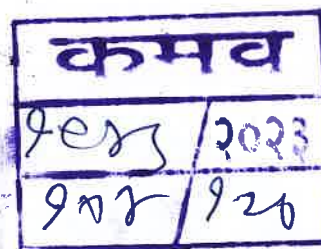 कमव
१९४३ / २०२३
१०४ / १२०